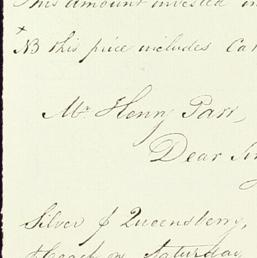 This amount invested in
x NB this price includes Car
Mr. Henry Parr,
Dear Sir,
Silver p Queensberry,
on Saturday